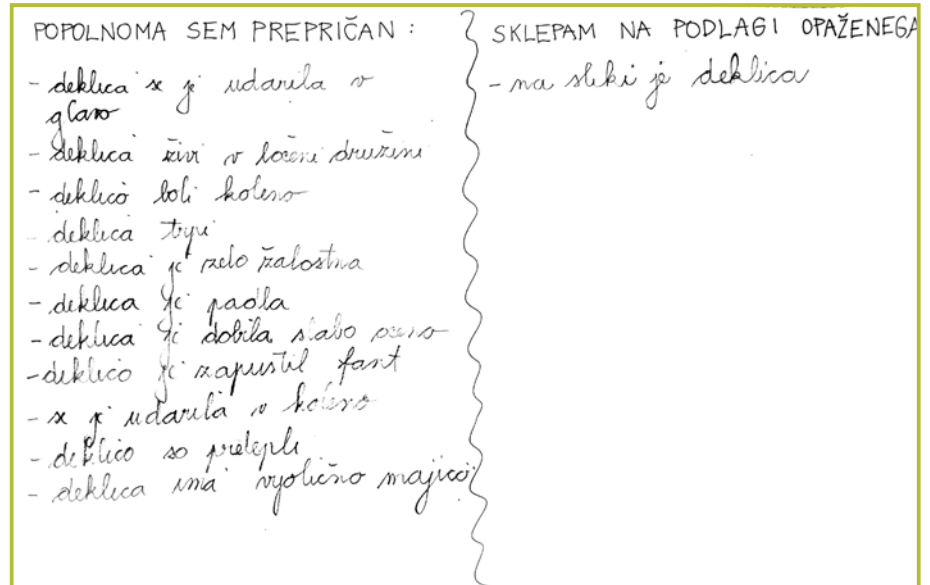 POPOLNOMA SEM PREPRIČAN :
- deklica se je udarila v
glavo
- deklica živi v ločeni družini
- deklico boli koleno
- deklica trpi
- deklica je zelo žalostna
- deklica je padla
- deklica je dobila slabo oceno
- deklico je zapustil fant
- se je udarila v koleno
- deklico so pretepli
- deklica ima vijolično majico
SKLEPAM NA PODLAGI OPAŽENEGA
- na sliki je deklica